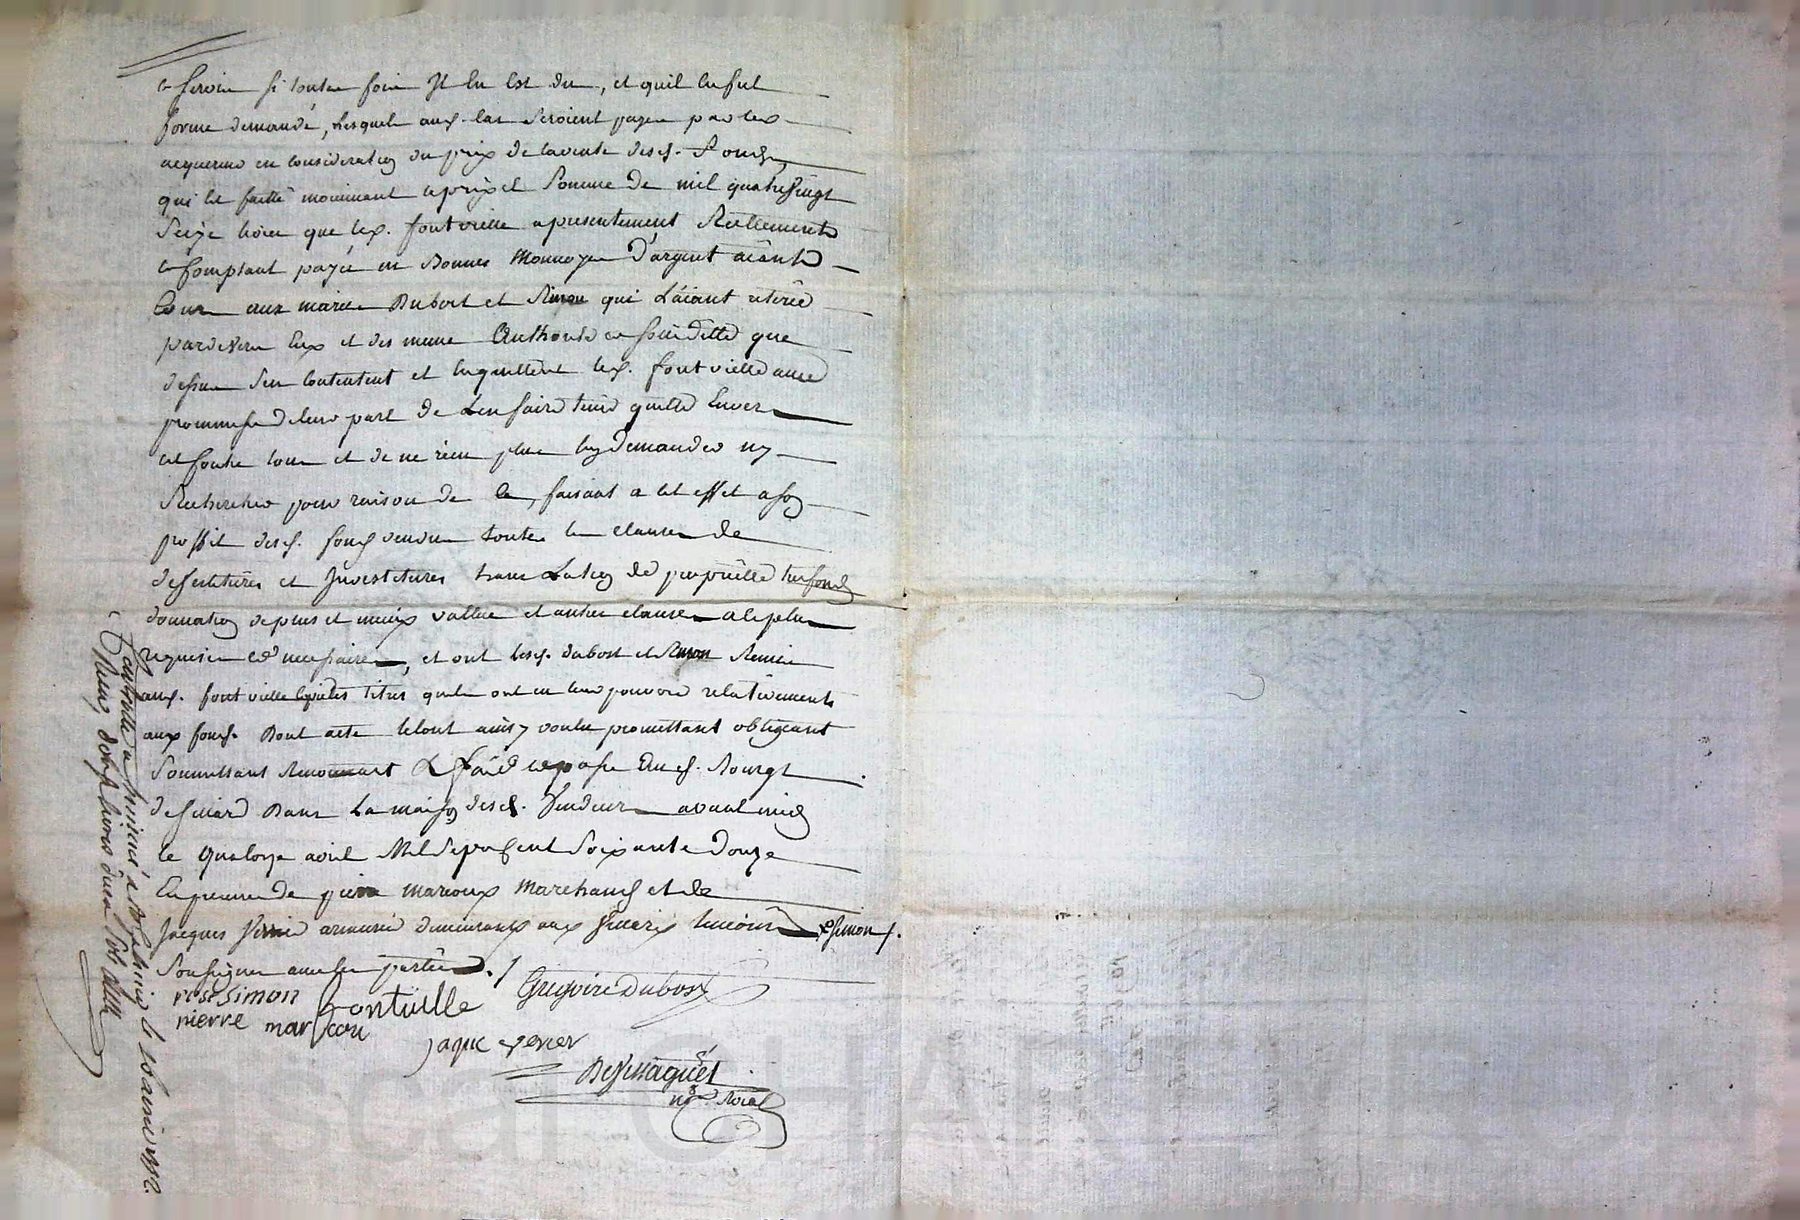 et servis si toutes fois Il en est du, et quil en fut
forme demandé, lesquels auxd. cas seroient payes par les
acquereur en consideration du prix de la vente desd. fonds,
qui est faitte moiennant le prix et somme de mil quatre vingt
Seize livres que led. fontvieille a presentement Reellement
et Comptant payée en Bonnes Monnoyes D'argent aiant
Cours aux maries Dubost et Simon qui L'aiant retirée
pardevers Eux et des meme Authorité en foi ditte que
dessus sen contentent et en quittent led. fontvieille avec
promesse de leur part de Len faire tenir quitte Envers
et contre tous et de ne rien plus luy demander ny
Rechercher pour raison de ce, faisant a cet effet a son
proffit desd. fonds vendus toutes les clauses de
desvestitures et Investitures translation de proprieté tresfonds
donnation de plus et mieux vallue et autres clauses a ce plus
requises et necessaires, et ont lesd. dubost et Simon Remis
aud. fontvielle les titres quils ont en leur pouvoir relativement
aux fonds. Dont acte telont ainsy voulu promettant obligeant
Soumettant Renoncant &. fait et passé Aud. Bourg
de sviard Dans La maison desd. Vendeurs avant midy
le Quatorze avril Mil Sept Cent Soixante Douze
En presence de pierre marcoux Marchand et de
Jacques Verrier armurié demeurants aux temoins x Simon /.
Soussignes avec les parties. /
rose simon fontvielle Gregoire Dubost
pierre marcou
jaque verier
Desmaguet
no.re Roial
Controllé a le 1772.
Reçu livres sols